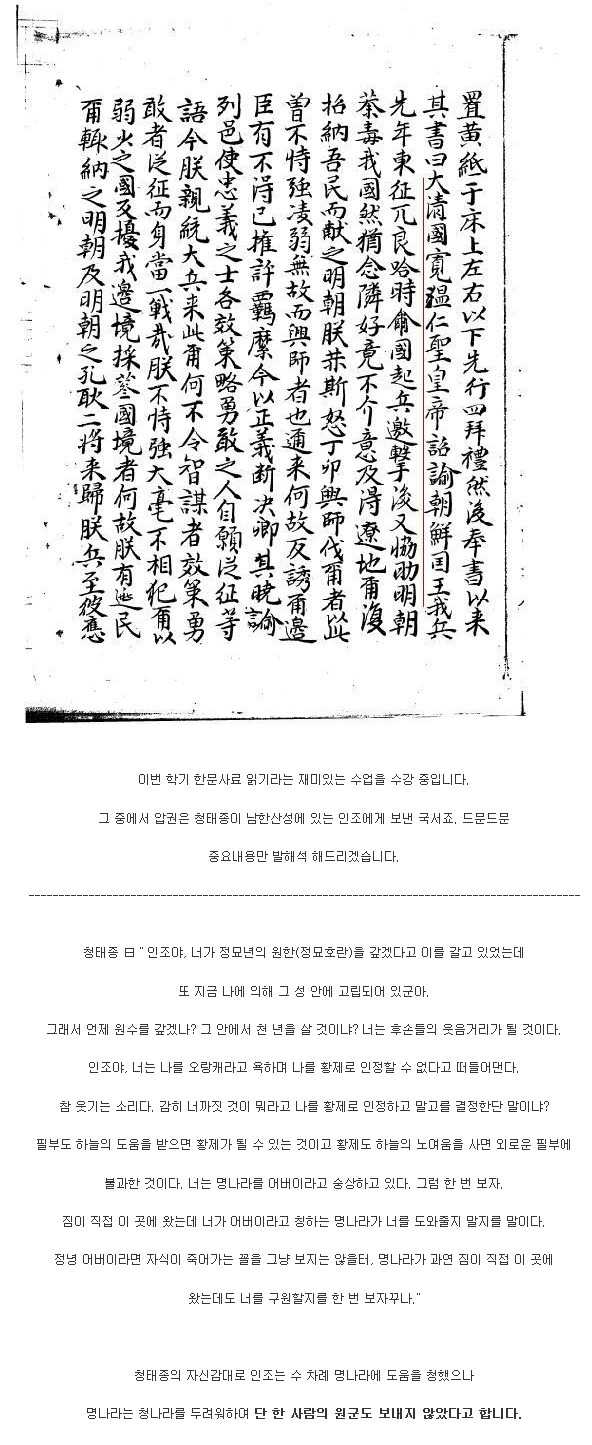 置黃紙于床上左右以下先行四拜禮然後奉書以来
其書曰大清國寬溫仁聖皇帝詔諭朝鮮国王我兵
先年東征兀良哈時爾國起兵邀擊後又恊助明朝
荼毒我國然猶念隣好竟不介意及得遼地爾復
招納吾民而献之明朝朕斯怒丁卯興師伐爾者此
曾不恃強凌弱無故而興師者也邇来何故反誘爾邊
臣有不得已推許羈縻今以正義断决卿其曉諭
列邑使忠義之士各效策略勇敢之人自願从征等
語今朕親統大兵来此爾何不令智謀者效策勇
敢者从征而身當一戰哉朕不恃強大毫不相犯爾以
弱火之國反擾我邊境採蔘國境者何故朕有逃民
爾輒納之明朝及明朝之孔耿二将来歸朕兵至彼應
이번 학기 한문사료 읽기라는 재미있는 수업을 수강 중입니다.
그 중에서 압권은 청태종이 남한산성에 있는 인조에게 보낸 국서죠. 드문드문
중요내용만 발해석 해드리겠습니다.
청태종 曰 " 인조야, 너가 정묘년의 원한(정묘호란)을 갚겠다고 이를 갈고 있었는데
또 지금 나에 의해 그 성 안에 고립되어 있군아.
그래서 언제 원수를 갚겠나? 그 안에서 천 년을 살 것이냐? 너는 후손들의 웃음거리가 될 것이다.
인조야, 너는 나를 오랑캐라고 욕하며 나를 황제로 인정할 수 없다고 떠들어댄다.
참 웃기는 소리다. 감히 너까짓 것이 뭐라고 나를 황제로 인정하고 말고를 결정한단 말이냐?
필부도 하늘의 도움을 받으면 황제가 될 수 있는 것이고 황제도 하늘의 노여움을 사면 외로운 필부에
불과한 것이다. 너는 명나라를 어버이라고 숭상하고 있다. 그럼 한 번 보자.
짐이 직접 이 곳에 왔는데 너가 어버이라고 칭하는 명나라가 너를 도와줄지 말지를 말이다.
정녕 어버이라면 자식이 죽어가는 꼴을 그냥 보지는 않을터, 명나라가 과연 짐이 직접 이 곳에
왔는데도 너를 구원할지를 한 번 보자꾸나."
청태종의 자신감대로 인조는 수 차례 명나라에 도움을 청했으나
명나라는 청나라를 두려워하여 단 한 사람의 원군도 보내지 않았다고 합니다.